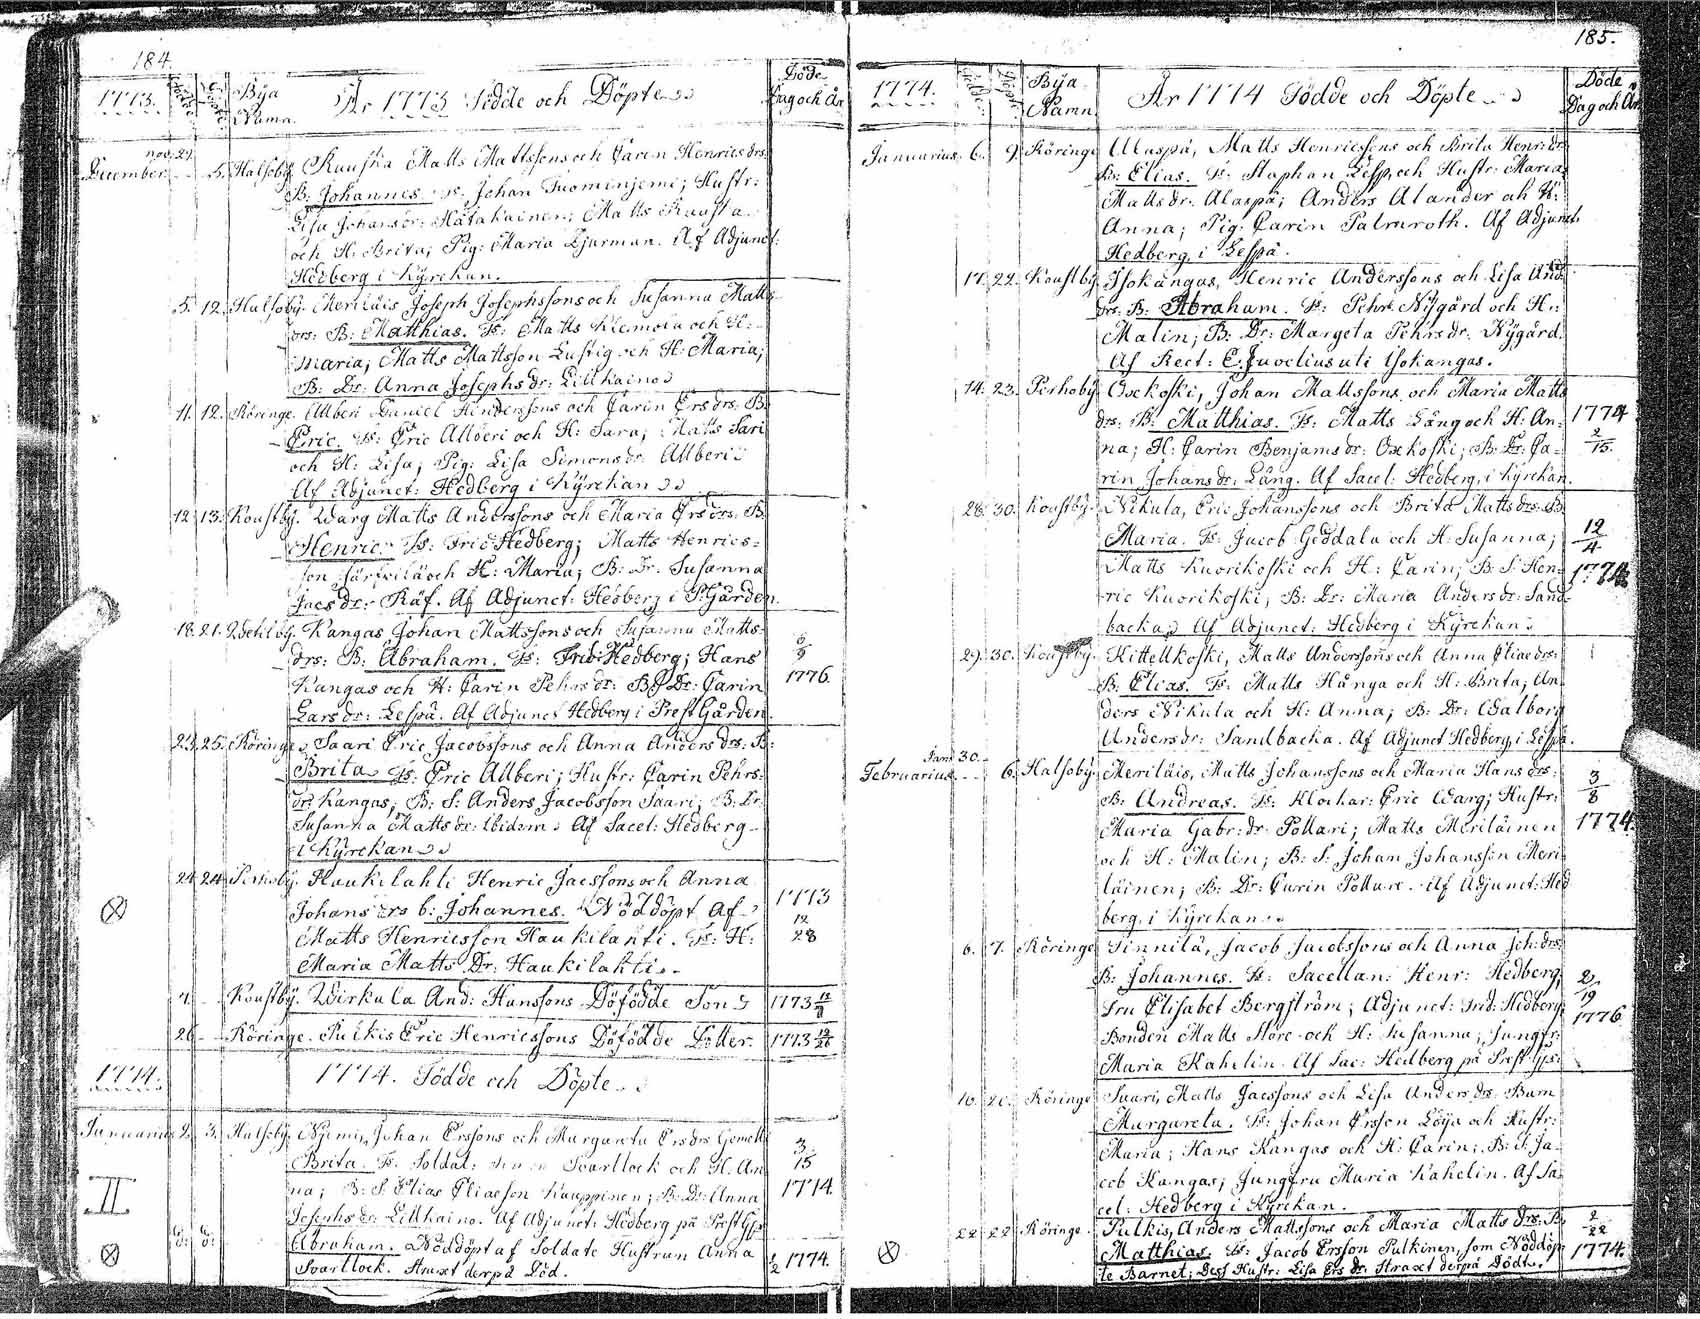 184.
1773.
Bya Namn.
År 1773 Födde och Döpte
Döde Dag och År
nov. 29.
December
5.
Halsoby.
Ruuska Matts Mattssons och Carin Henrics drs
B. Johannes. Fs. Johan Tuominjemi; Hustr:
Lisa Johans dr: Hatakainen; Matts Ruuska
och H: Brita; Pig: Maria Djurman. Af Adjunct:
Hedberg i Kyrckan.
5. 12. Halsoby. Meriläis Joseph Josephssons och Susanna Matts
drs: B: Matthias. Fs: Matts Klemola och H:
Maria; Matts Mattsson Lustig och H: Maria;
B: Dr: Anna Josephs dr: Lillkaino
11. 12. Röringe. Allberi Daniel Hinderssons och Carin Ers drs: B.
Eric. Fs: Eric Allberi och H: Sara; Matts Sari
och H: Lisa; Pig: Lisa Simons dr: Allberi
Af Adjunct: Hedberg i Kyrckan
12. 13. Koustby. Warg Matts Anderssons och Maria Ers drs: B
Henric. Fs: Fric Hedberg; Matts Henrics-
son Järfvilä och H: Maria; B: Dr: Susanna
Jacs dr: Räf. Af Adjunct: Hedberg i P:Gården.
18. 21.
Kangas Johan Mattssons och Susanna Matts-
drs: B: Abraham. Fs: Frid: Hedberg; Hans
Kangas och H: Carin Pehrs dr: B: Dr: Carin
Lars dr: Lespä. Af Adjunct Hedberg i PrestGården.
6/9
1776.
23. 25. Röringe. Saari Eric Jacobssons och Anna Anders drs: B:
Brita Fs: Eric Allberi; Hustr: Carin Pehrs:
dr: Kangas; B: S: Anders Jacobsson Saari; B: Dr:
Susanna Matts dr: Ibidem. Af Sacel: Hedberg
i Kyrckan
24 24 Perhoby. Haukilahti Henric Jacssons och Anna
Johans drs b: Johannes. Nöddöpt Af
Matts Henricsson Haukilahti. Fs: H:
Maria Matts Dr: Haukilahti.
1773
12
28
7. Koustby. Wirkula And: Hanssons Döfödde Son
1773
26 Röringe. Pulkis Eric Henricssons Döfödde Dotter.
1773 12/26
1774.
1774. Födde och Döpte
Januarius 2. 3. Halsoby. Niemis, Johan Erssons och Margareta Ers drs Gemell:
Brita. Fs: Soldat: Svartlock och H: An
na; B: S: Elias Eliasson Kauppinen; B: Dr: Anna
Josephs dr: Lillkaino. Af Adjunct: Hedberg på PrestGn
3/15
1774.
II
d: o:
Abraham. Nöddöpt af Soldate Hustrun Anna
Svartlock. Straxt derpå Död.
1774.
185.
1774.
Bya Namn
År 1774 Födde och Döpte
Döde Dag och År
Januarius. 6. 9. Röringe Alaspä, Matts Henricssons och Brita Henr: dr:
B: Elias. Fs. Staphan Lesp och Hustr: Maria
Matts dr: Alaspä; Anders Alander och H:
Anna; Pig: Carin Palmroth. Af Adjunct
Hedberg i Lespä.
17. 22. Koustby Isokangas, Henric Anderssons och Lisa And
drs: B: Abraham. Fs: Pehr Nygård och H:
Malin; B: Dr: Margeta Pehrs dr: Nygård.
Af Rect: E. Juvelius uti Isokangas.
14. 23. Perhoby. Oxekoski, Johan Mattssons och Maria Matts
drs: B: Matthias. Fs: Matts Lång och H: An-
na; H: Carin Benjams dr: Oxekoski; B: Dr: Ca-
rin Johans dr: Lång. Af Sacel: Hedberg, i Kyrckan.
1774
2/15.
28. 30. Koustby. Nikula, Eric Johanssons och Brita Matts drs: B
Maria. Fs: Jacob Geddala och H: Susanna;
Matts Kuorikoski och H: Carin; B: S: Hen-
ric Kuorikoski, B: Dr: Maria Anders dr: Sand-
backa Af Adjunct: Hedberg i Kyrckan
12/4
1774
29. 30. Koustby. Kittelkoski, Matts Anderssons och Anna Eliae drs:
B: Elias. Fs: Matts Hånga och H: Brita; An
ders Nikula och H: Anna; B: Dr: Walborg
Anders dr: Sandbacka. Af Adjunct Hedberg, i Lespä.
Janu: 30.
Februarius. 6. Halsoby. Meriläis, Matts Johanssons och Maria Hans drs:
B: Andreas. Fs: Klockar: Eric Warg; Hustr:
Maria Gabr: dr: Pollari; Matts Meriläinen
och H: Malin; B: S: Johan Johansson Meri
läinen; B: Dr: Carin Pollare. Af Adjunct: Hed
berg, i Kyrckan
3/8
1774.
6. 7. Röringe Finnilä, Jacob Jacobssons och Anna Joh: drs
B: Johannes. Fs: Sacellan: Henr: Hedberg,
Fru Elisabet Bergström; Adjunct: Frid: Hedberg
Bonden Matts Store och H: Susanna; Jungfr:
Maria Kahelin. Af Sac: Hedberg på Prest
2/19
1776
10. 20. Röringe Saari, Matts Jacssons och Lisa Anders drs Barn
Margareta. Fs: Johan Ersson Löija och Hustr:
Maria; Hans Kangas och H: Carin; B: S: Ja-
cob Kangas; Jungfru Maria Kahelin. Af Sa-
cel: Hedberg i Kyrckan.
22 22 Röringe. Pulkis, Anders Mattssons och Maria Matts drs: B:
Matthias. Fs: Jacob Ersson Pulkinen, som Nöddöp-
te Barnet; Dess Hustr: Lisa Ers dr: Straxt derpå Dödt.
2/22
1774.